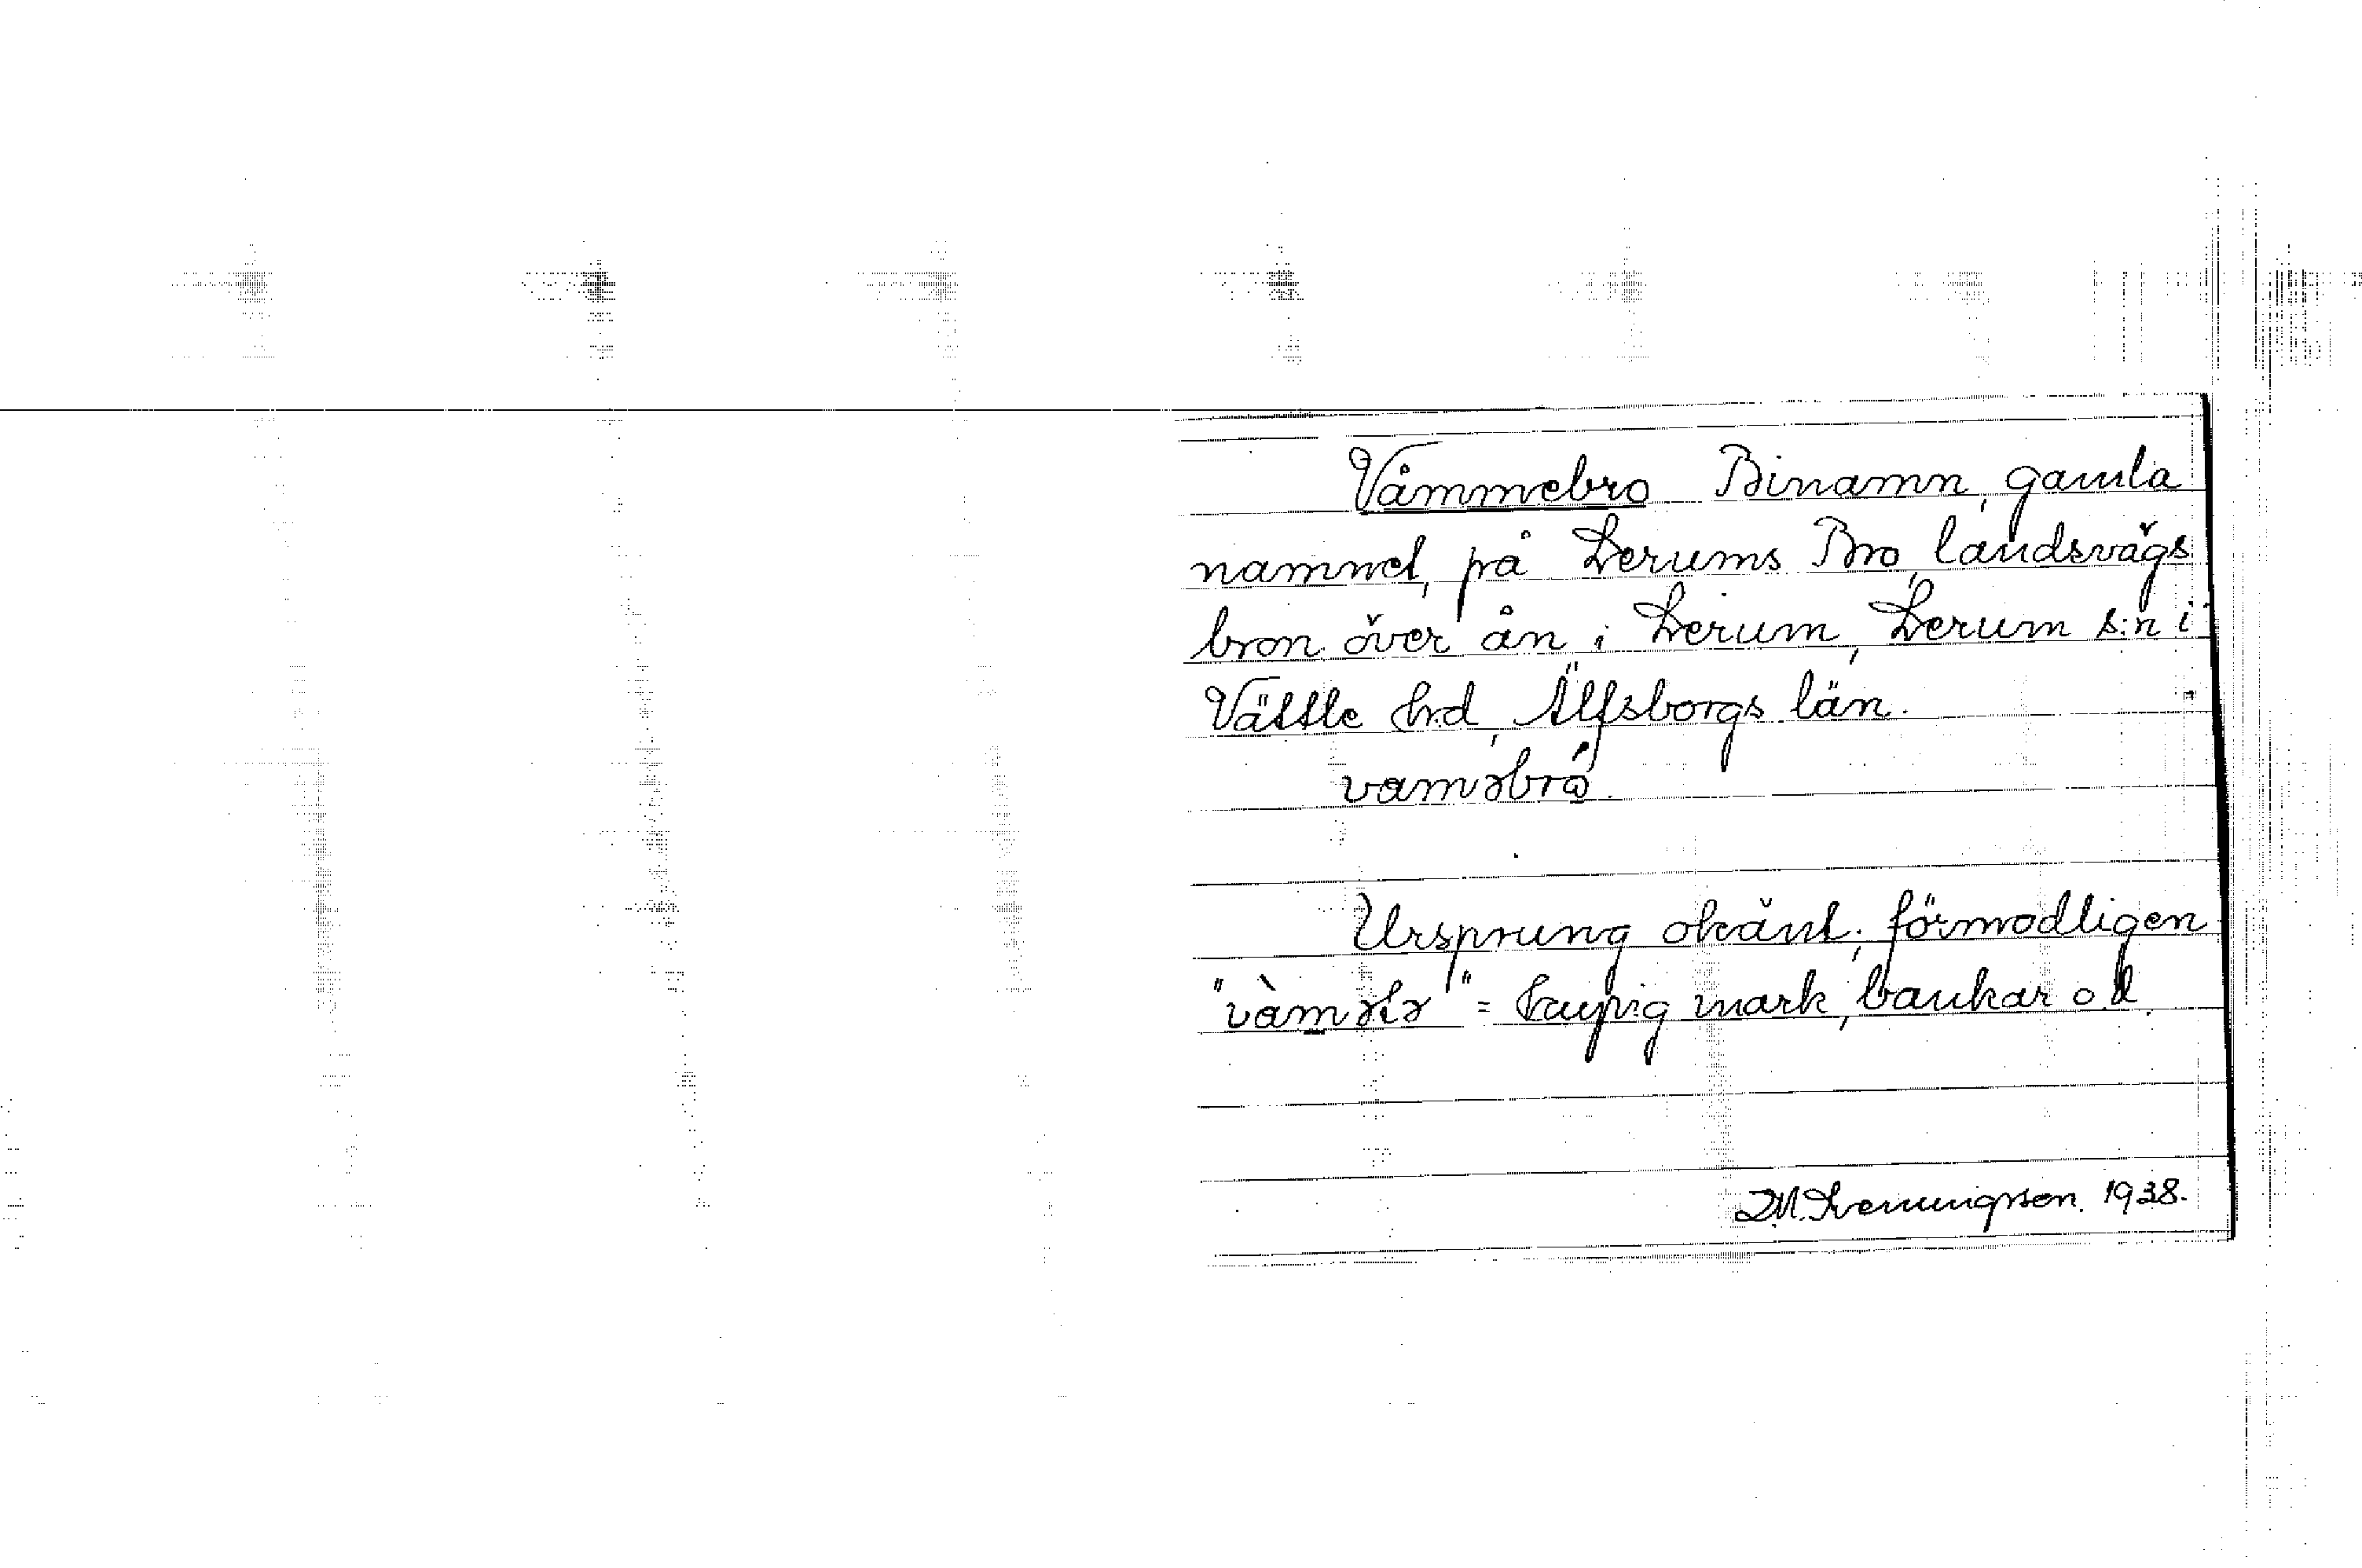 Våmmebro Binamn, gamla
namnet, på Lerums Bro, landsvägs
bron över ån i Lerum, Lerum s:n i
Vättle hd, Älfsborgs län.
vaməbrɷ́.
Ursprung okänt; förmodligen
" = mark, bankar o.d.
1938.